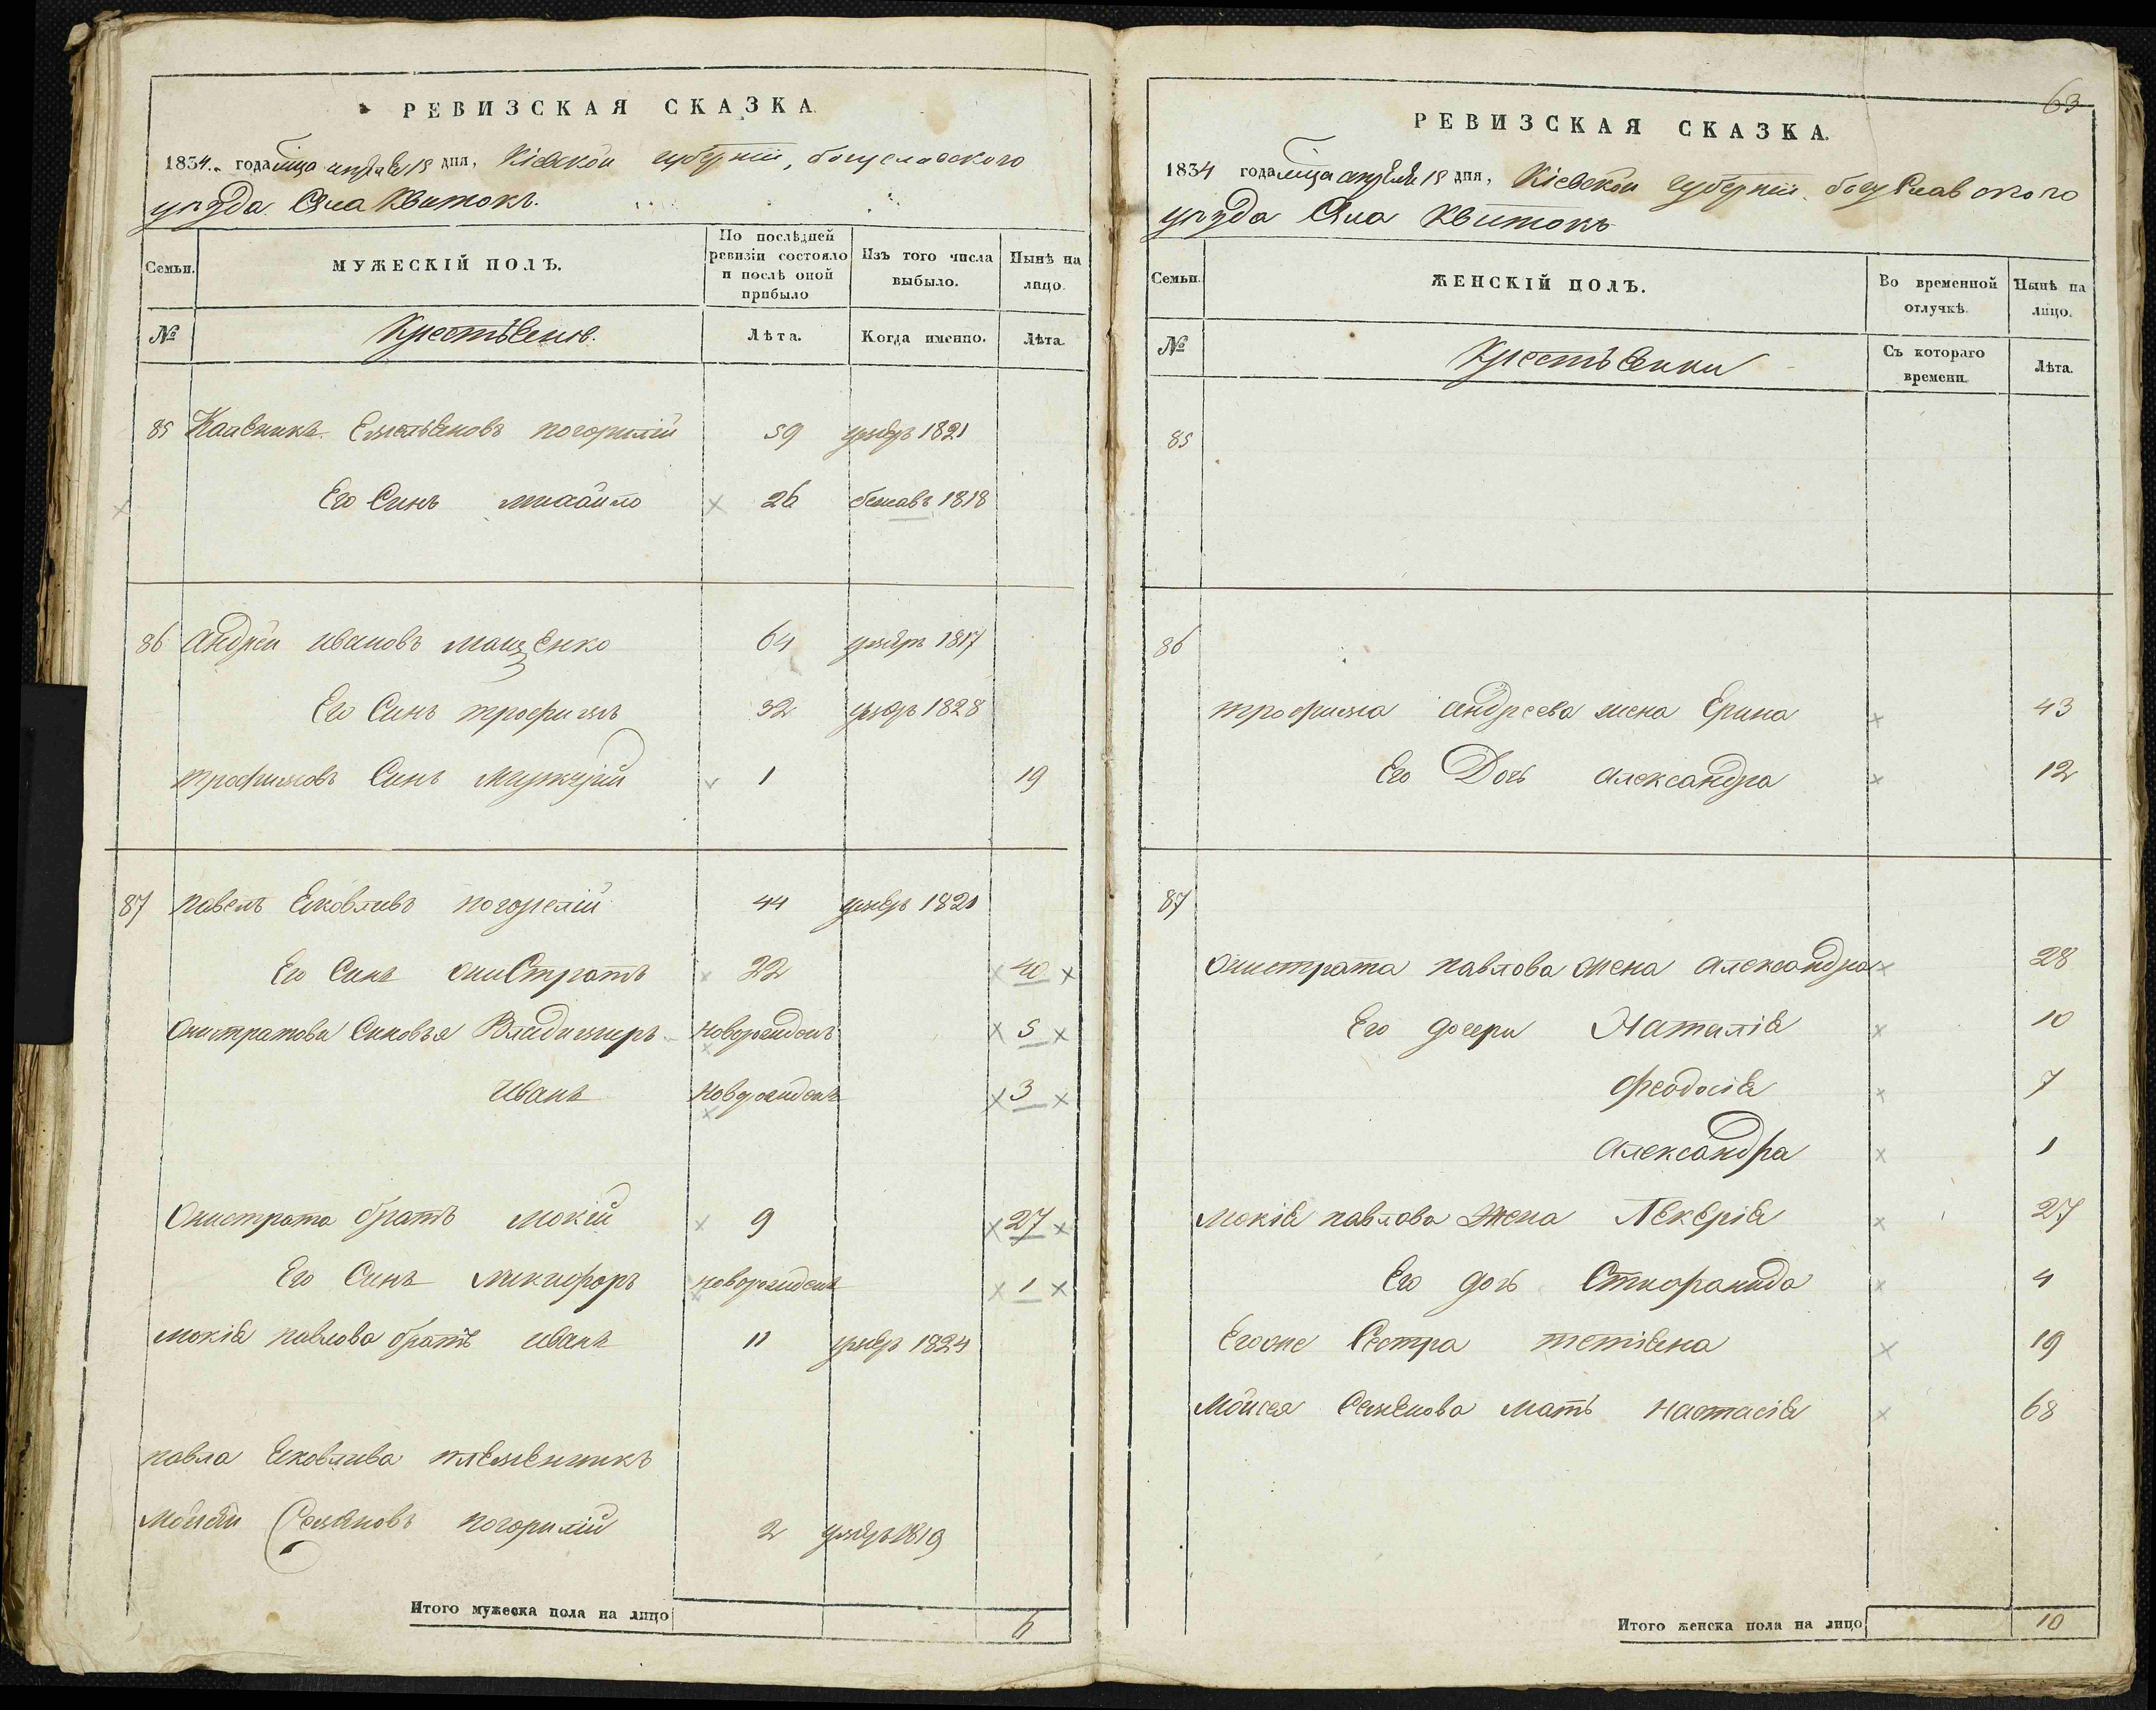 РЕВИЗСКАЯ СКАЗКА.
1834 года мца апреля 18 дня, Кіевской губерніи, богуславского
уезда Села Квитокъ.
Семьи.
МУЖЕСКІЙ ПОЛЪ.
По послѣдней ревизіи состояло и послѣ оной прибыло
Изъ того числа выбыло.
Нынѣ на лицо.
№
Крестьяне.
Лѣта.
Когда именно.
Лѣта.
85 Емельяновъ погорилій 59 умеръ 1821
Его Синъ михайло 26 бежавъ 1818
86 андрей ивановъ мащенко 64 умеръ 1817
Его Синъ трофимъ 32 умеръ 1828
трофимовъ Синъ 1 19
87 павелъ Яковливъ погорелій 44 умеръ 1821
Его Синъ ониСтратъ 22 40
Онистратови Синовья Владимиръ новорожденъ 5
иванъ новорожденъ 3
Онистрата братъ мокій 9 27
Его Синъ никифоръ новорожденъ 1
мокія павлова братъ иванъ 11 умеръ 1824
павла Яковлива племянникъ
Мойсей Семяновъ погорилій 2 умеръ 1819
Итого мужеска пола на лицо 6
63
РЕВИЗСКАЯ СКАЗКА.
1834 года мца апреля 18 дня, Кіевской губерніи, богуславского
уезда Села Квитокъ
Семьи.
ЖЕНСКІЙ ПОЛЪ.
Во временной отлучкѣ.
Нынѣ на лицо.
№
Крестьянки
Съ котораго времени.
Лѣта.
85
86
трофима андреева жена Ерина 43
Его Дочь александра 12
87
Онистрата павлова жена александра 28
Его дочери Наталія 10
Феодосія 7
александра 1
мокія павлова жена Лекерія 27
Его дочь 4
Егоже Сестра тетіяна 19
Мойсея Семянова мать настасія 68
Итого женска пола на лицо 10